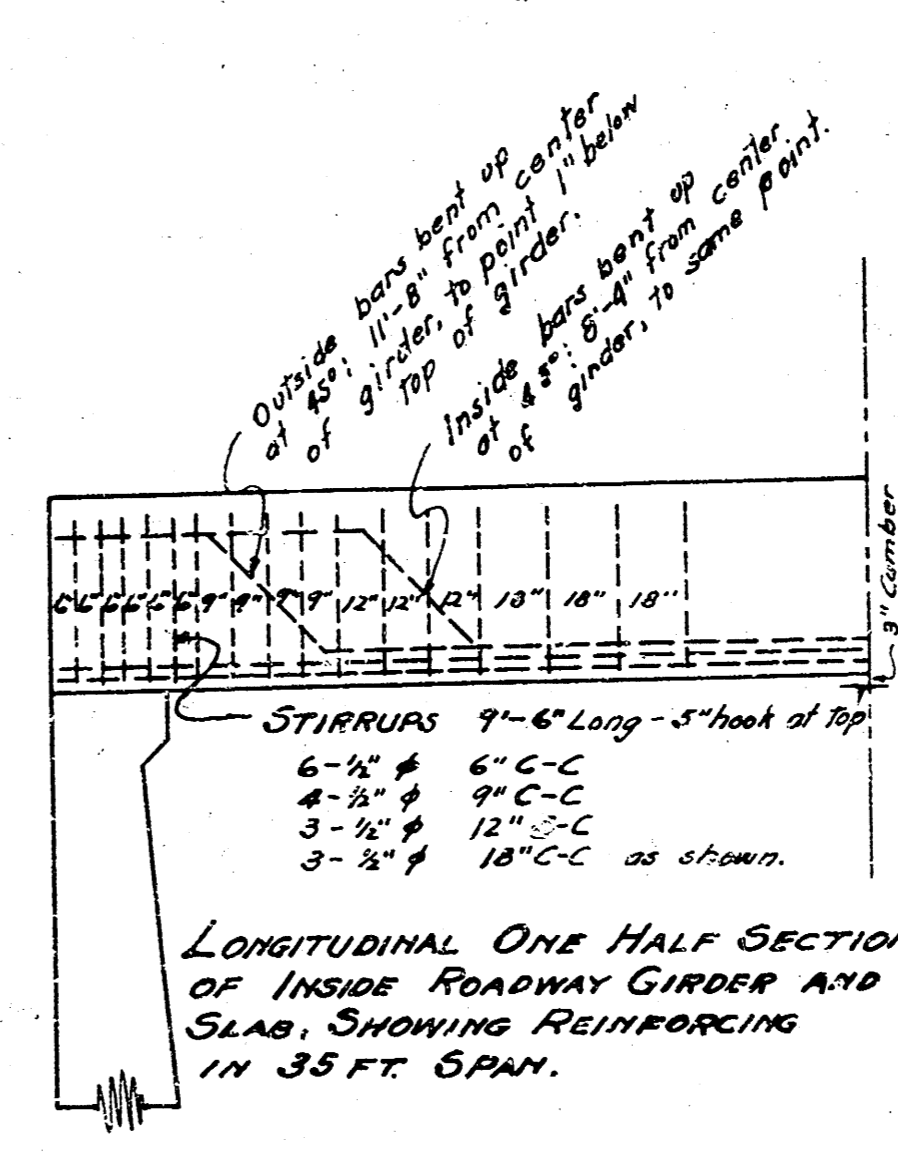 Outside bars bent up
at 45°; 11'-8" from center
of girder, to point 1" below
top of girder.
Inside bars bent up
at 45°; 8'-4" from center
of girder, to same point.
6" 6" 6" 6" 6" 6" 9" 9" 9" 9" 12" 12" 12" 18" 18" 18"
3" Camber
STIRRUPS 9'-6" Long - 5" hook at top
6-½" ϕ 6" C-C
4-½" ϕ 9" C-C
3-½" ϕ 12" C-C
3-½" ϕ 18" C-C as shown.
LONGITUDINAL ONE HALF SECTION
OF INSIDE ROADWAY GIRDER AND
SLAB, SHOWING REINFORCING
IN 35 FT. SPAN.